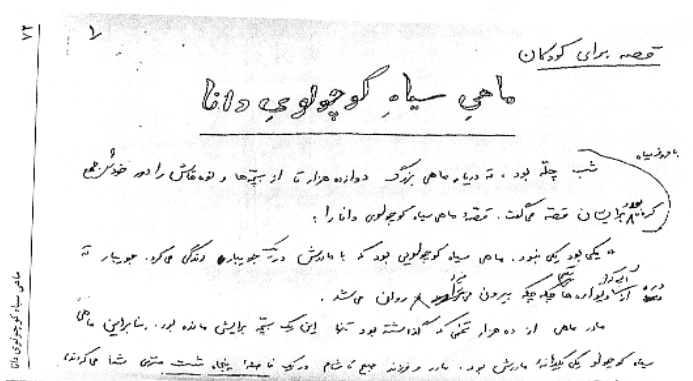 ۷۲
۱
قصه برای کودکان
ماهیِ سیاهِ کوچولویِ دانا
با حروف سیاه
شب چله بود، ته دریا، ماهی بزرگ دوازده هزار تا از بچه‌ها و نوه‌هاش را دور خودش جمع
کرده بود و برایشان قصه می‌گفت. قصهٔ ماهی سیاه کوچولوی دانا را:
«یکی بود یکی نبود. ماهی سیاه کوچولویی بود که با مادرش در جویباری زندگی می‌کرد. جویبار ته
دره از دیواره‌ها بیرون روان می‌شد.
مادر ماهی از ده هزار تخمی که گذاشته بود تنها این یک بچه برایش مانده بود. بنابراین ماهی
سیاه کوچولو یکی یکدانهٔ مادرش بود. مادر و فرزند صبح تا شام در یک فاصلهٔ پنجاه شصت متری شنا می‌کردند
ماهی سیاه کوچولوی دانا